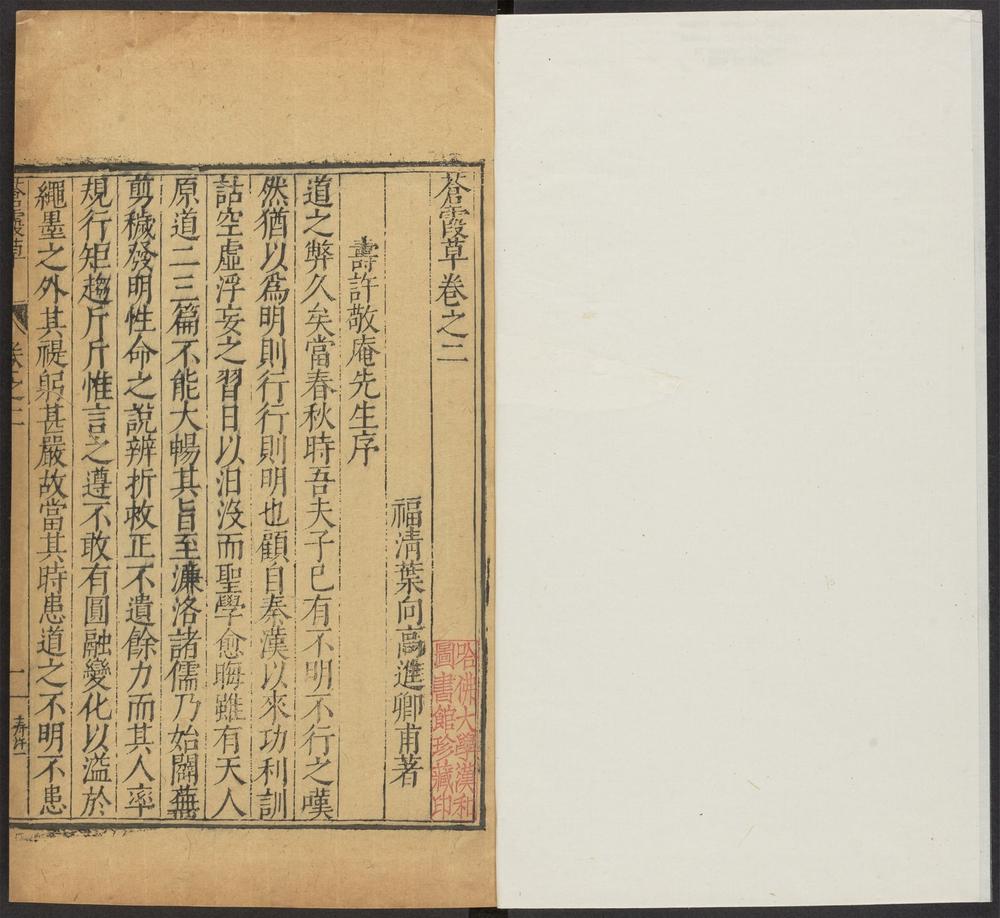 蒼霞草卷之二
福清葉向高進卿甫著
壽許敬庵先生序
道之弊久矣當春秋時吾夫子已有不明不行之嘆
然猶以爲明則行行則明也顧自秦漢以來功利訓
詁空虛浮妄之習日以汨没而聖學愈晦雖有天人
原道二三篇不能大暢其旨至濂洛諸儒乃始闢蕪
剪穢發明性命之說辨折救正不遺餘力而其人率
規行矩趨斤斤惟言之遵不敢有圓融變化以溢於
繩墨之外其禔躬甚嚴故當其時患道之不明不患
蒼霞草
卷之二
一
壽許一
哈佛大學漢和
圖書館珍藏印